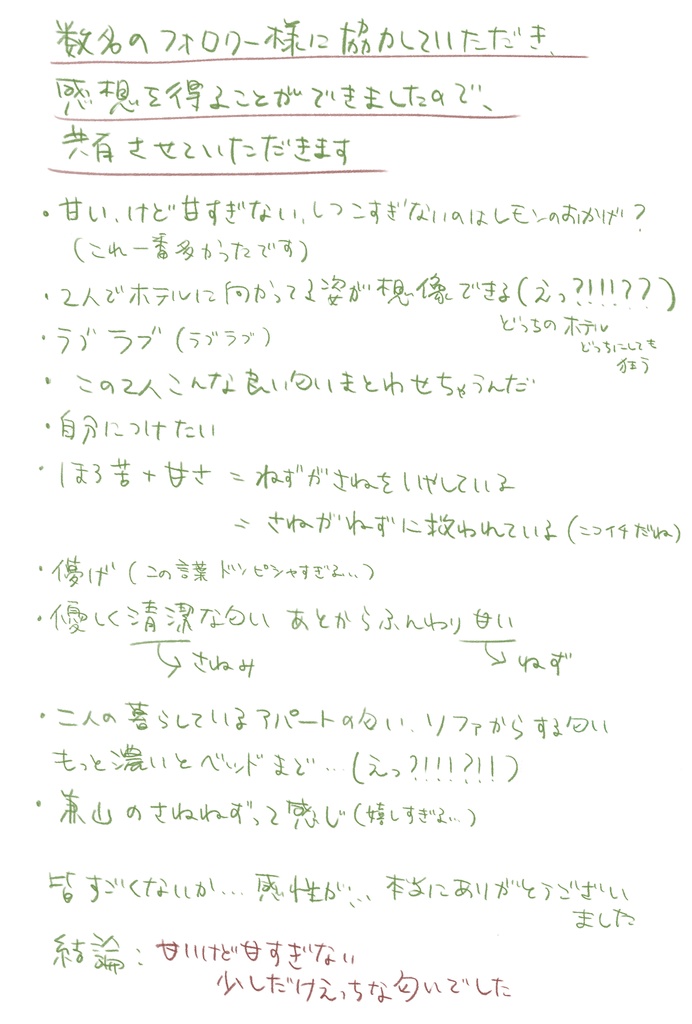 数名のフォロワー様に協力していただき、
感想を得ることができましたので、
共有させていただきます
・甘い、けど甘すぎない、しつこすぎないのはレモンのおかげ？
(これ一番多かったです)
・2人でホテルに向かってる姿が想像できる(えっ?!!!??)
どっちのホテル
どっちにしても
狂う
・ラブラブ(ラブラブ)
・この2人こんな良い匂いまとわせちゃうんだ
・自分につけたい
・ほろ苦+甘さ=ねずがさねをいやしている
=さねがねずに救われている(ニコイチだね)
・儚げ(この言葉ドンピシャすぎる…)
・優しく清潔な匂い あとからふんわり甘い
さねみ
ねず
・二人の暮らしているアパートの匂い、ソファからする匂い
もっと濃いとベッドまで…(えっ?!!!?!!)
・兼山のさねねずって感じ(嬉しすぎる…)
皆すごくないか…感性が… 本当にありがとうござい
ました
結論:甘いけど甘すぎない
少しだけえっちな匂いでした